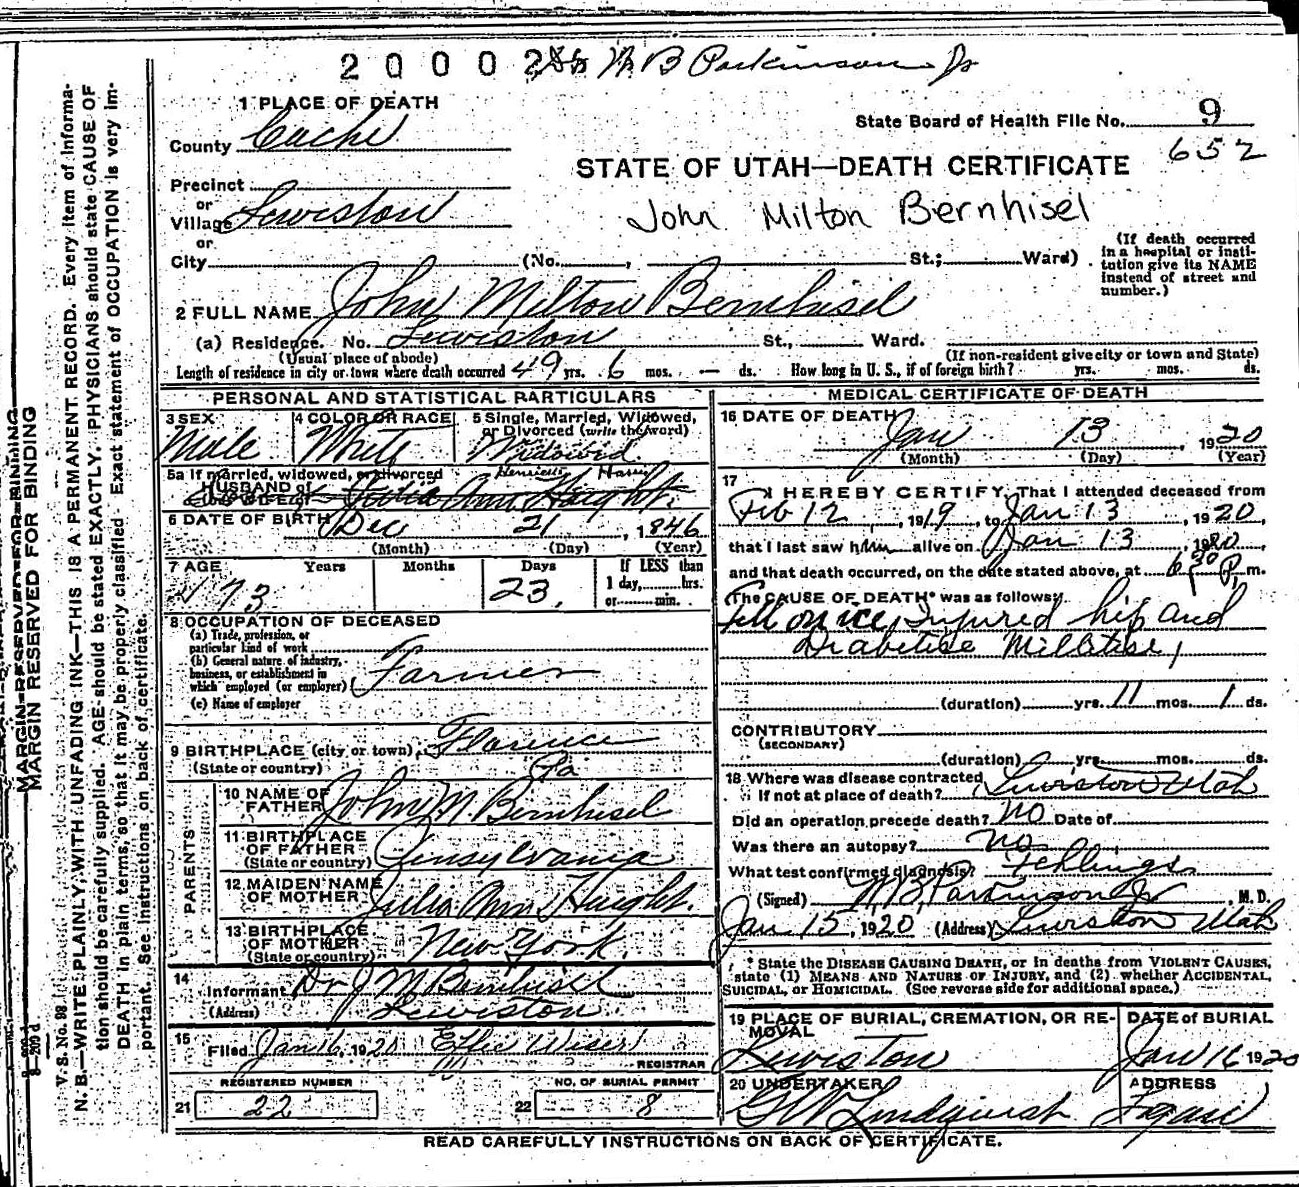 2 0 0 0 2 W B Parkinson Jr
1 PLACE OF DEATH
County Cache
State Board of Health File No. 9
652
STATE OF UTAH—DEATH CERTIFICATE
John Milton Bernhisel
Precinct
or
Village Lewiston
or
City (No. , St.; Ward)
(If death occurred in a hospital or insti-
tution give its NAME
instead of street and
number.)
2 FULL NAME John Milton Bernhisel
(a) Residence. No. Lewiston St., Ward.
(Usual place of abode) (If non-resident give city or town and State)
Length of residence in city or town where death occurred 49 yrs. 6 mos. — ds. How long in U. S., if of foreign birth? yrs. mos. ds.
PERSONAL AND STATISTICAL PARTICULARS
3 SEX Male
4 COLOR OR RACE White
5 Single, Married, Widowed,
or Divorced (write the word)
Widowed
5a If married, widowed, or divorced
HUSBAND of
Julia Ann Haight
6 DATE OF BIRTH Dec 21, 1846
(Month) (Day) (Year)
7 AGE Years Months Days
73 23
If LESS than
1 day, hrs.
or min.
8 OCCUPATION OF DECEASED
(a) Trade, profession, or
particular kind of work
(b) General nature of industry,
business, or establishment in
which employed (or employer) Farmer
(c) Name of employer
9 BIRTHPLACE (city or town) Florence
(State or country)
PARENTS
10 NAME OF
FATHER John M. Bernhisel
11 BIRTHPLACE
OF FATHER
(State or country) Pensylvania
12 MAIDEN NAME
OF MOTHER Julia Ann Haight.
13 BIRTHPLACE
OF MOTHER
(State or country) New York.
14
Informant Dr J M Bernhisel
(Address) Lewiston
15
Filed Jan 16, 192 Effie Wiser
REGISTRAR
REGISTERED NUMBER
21 22
NO. OF BURIAL PERMIT
22 8
MEDICAL CERTIFICATE OF DEATH
16 DATE OF DEATH Jan 13, 1920
(Month) (Day) (Year)
17
I HEREBY CERTIFY, That I attended deceased from
Feb 12, 1919, to Jan 13, 1920,
that I last saw him alive on Jan 13, 1920,
and that death occurred, on the date stated above, at 6 30 P. m.
The CAUSE OF DEATH* was as follows:
Fell on ice, Injured hip and
Diabetise Millitise,
(duration) yrs. 11 mos. 1 ds.
CONTRIBUTORY
(SECONDARY)
(duration) yrs. mos. ds.
18 Where was disease contracted,
If not at place of death? Lewiston Utah
Did an operation precede death? No Date of
Was there an autopsy? No
What test confirmed diagnosis? Fehlings
(Signed) W. B. Parkinson Jr, M. D.
Jan 15, 1920 (Address) Lewiston Utah
* State the DISEASE CAUSING DEATH, or in deaths from VIOLENT CAUSES,
state (1) MEANS AND NATURE OF INJURY, and (2) whether ACCIDENTAL,
SUICIDAL, or HOMICIDAL. (See reverse side for additional space.)
19 PLACE OF BURIAL, CREMATION, OR RE-
MOVAL
Lewiston
DATE of BURIAL
Jan 16 1920
20 UNDERTAKER
G W Lindquist
ADDRESS
Logan
READ CAREFULLY INSTRUCTIONS ON BACK OF CERTIFICATE.
MARGIN RESERVED FOR BINDING
MARGIN RESERVED FOR BINDING
V. S. No. 98
N. B.—WRITE PLAINLY, WITH UNFADING INK—THIS IS A PERMANENT RECORD. Every item of informa-
tion should be carefully supplied. AGE should be stated EXACTLY. PHYSICIANS should state CAUSE OF
DEATH in plain terms, so that it may be properly classified. Exact statement of OCCUPATION is very im-
portant. See instructions on back of certificate.